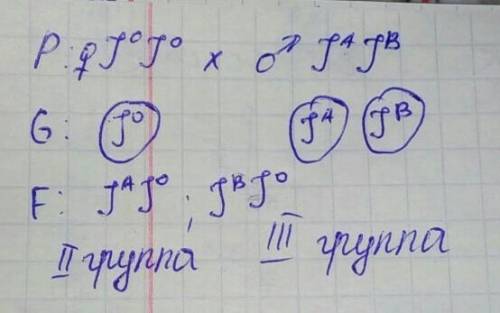 P: ♀ J⁰J⁰ x ♂ JᴬJᴮ
G: J⁰ Jᴬ Jᴮ
F: JᴬJ⁰ ; JᴮJ⁰
II группа III группа